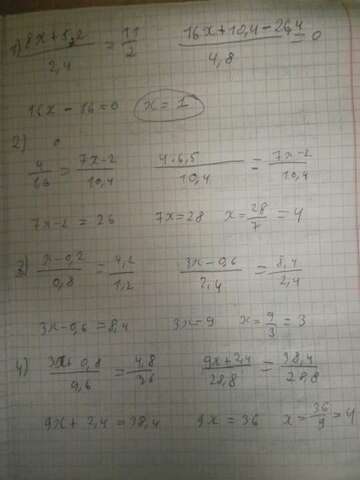 1) (8x+5,2)/2,4 = 11/2 (16x+10,4-26,4)/4,8 = 0
16x - 16=0 x=1
2) 4/1,6 = (7x-2)/10,4 4·6,5/10,4 = (7x-2)/10,4
7x-2 = 26 7x=28 x=28/7=4
3) (x-0,2)/0,8 = 4,2/1,2 (3x-0,6)/2,4 = 8,4/2,4
3x-0,6=8,4 3x=9 x=9/3=3
4) (3x+0,8)/9,6 = 4,8/3,6 (9x+2,4)/28,8 = 38,4/28,8
9x+2,4=38,4 9x=36 x=36/9=4